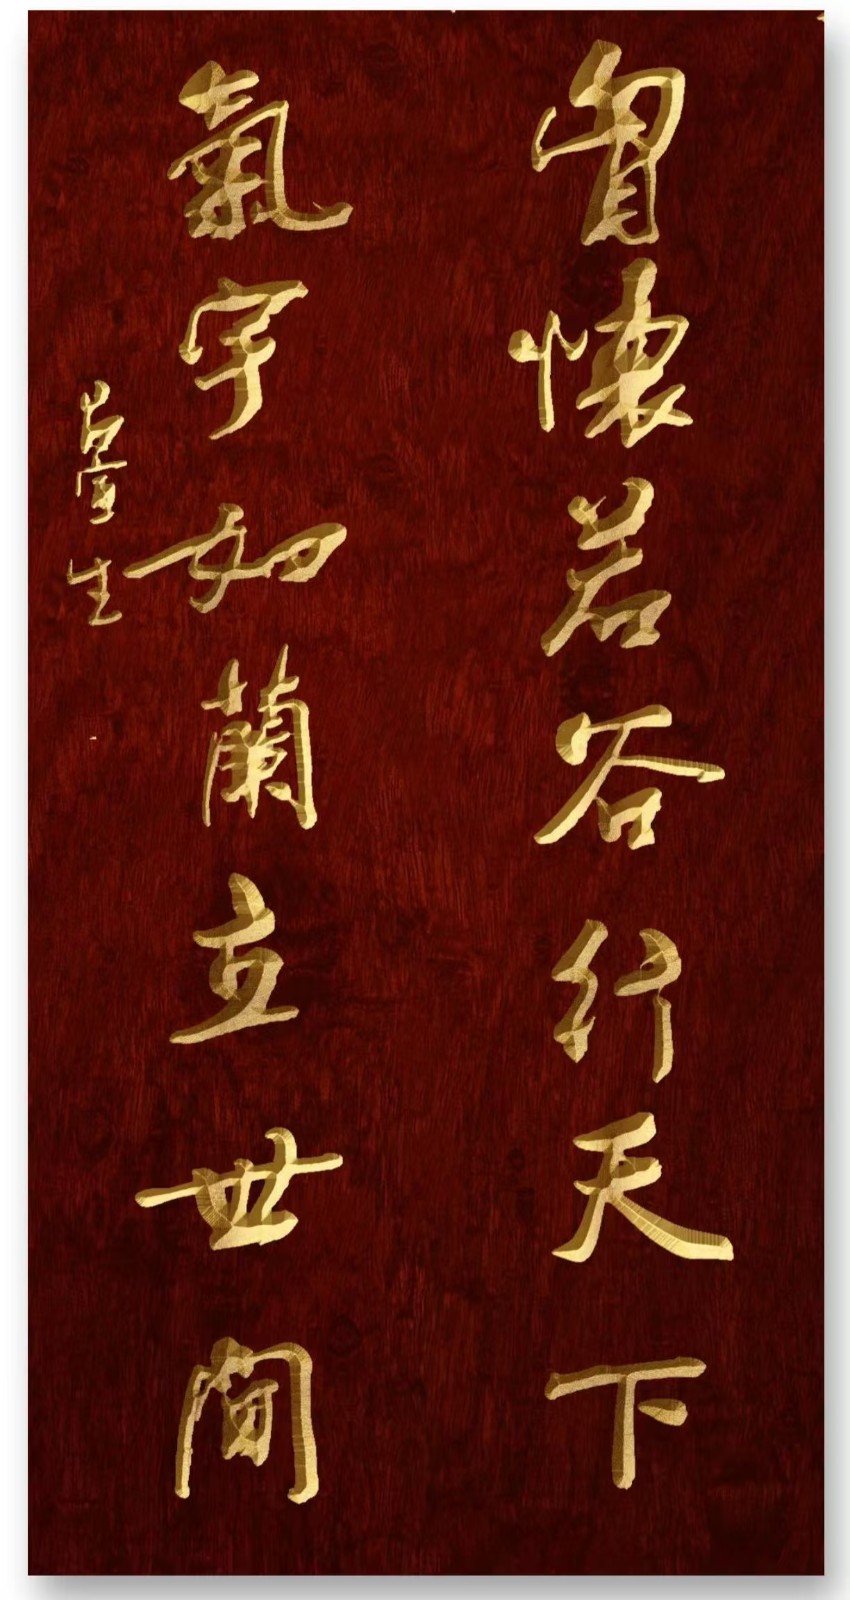 胷懷若谷行天下
氣宇如蘭立世間